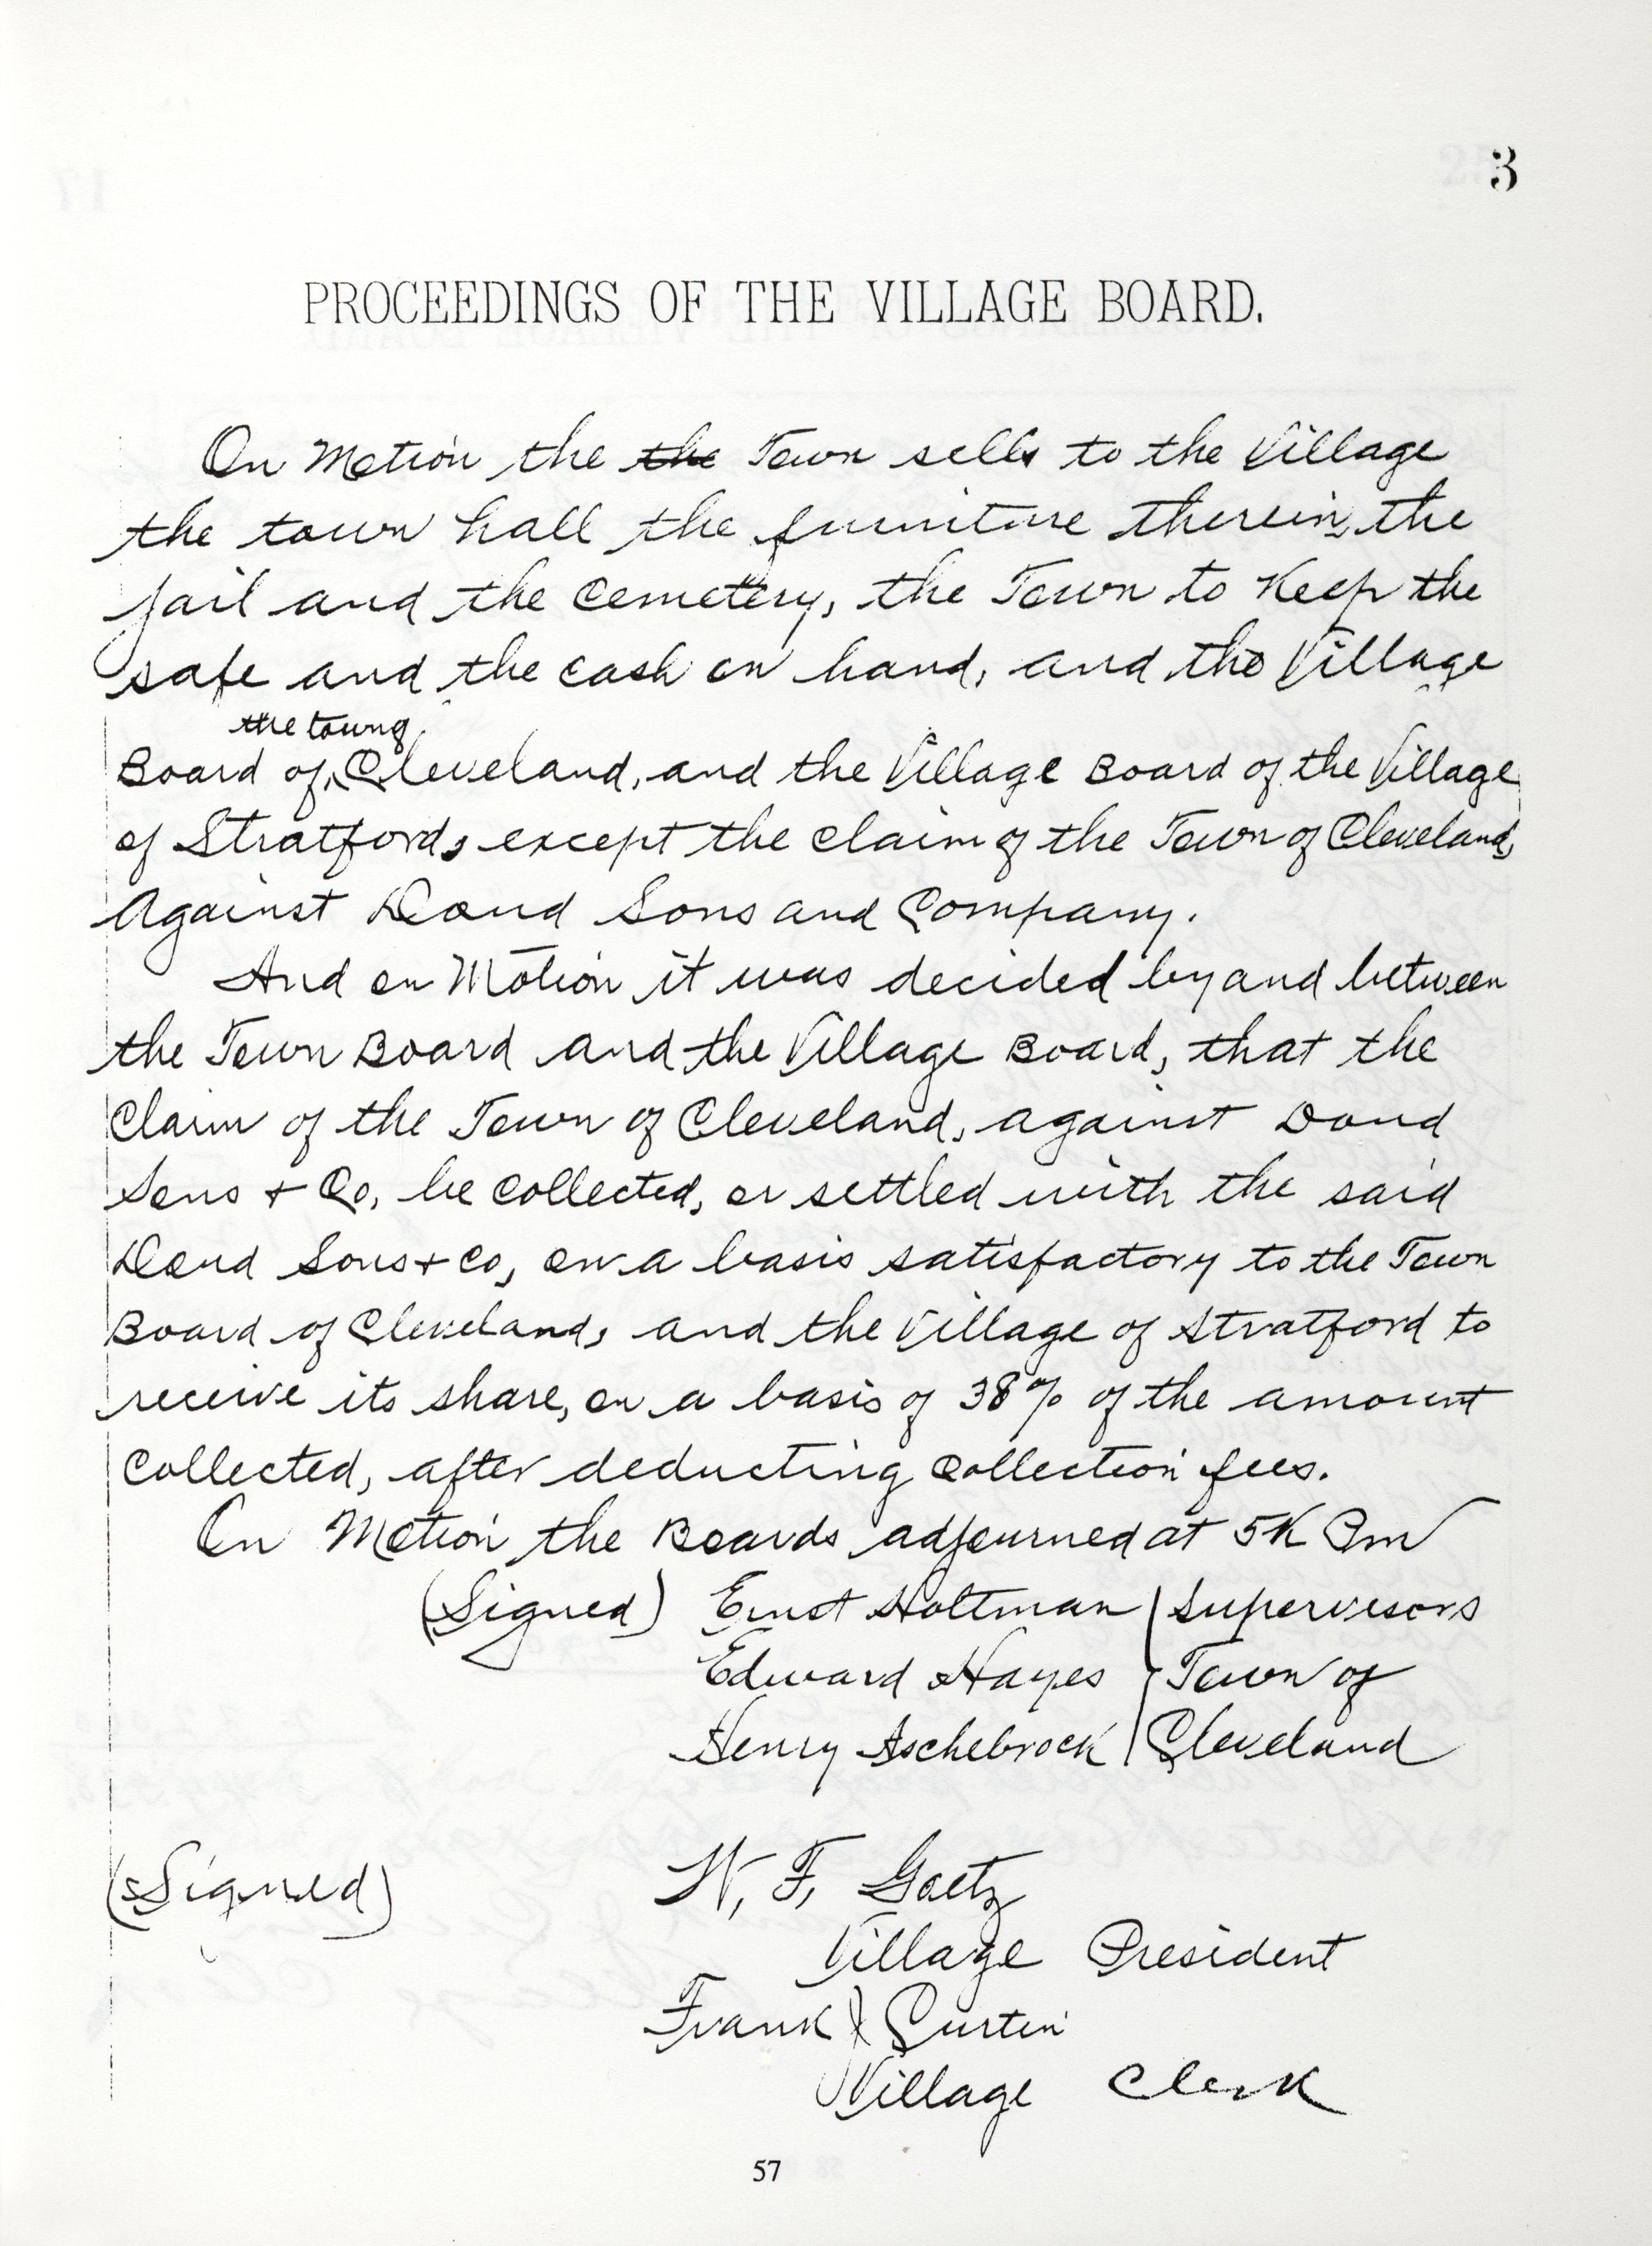 3
PROCEEDINGS OF THE VILLAGE BOARD.
On Motion the the Town sells to the Village
the town hall the furniture therein, the
jail and the Cemetery, the Town to Keep the
safe and the cash on hand, and the Village
the town of
Board of, Cleveland, and the Village Board of the Village
of Stratford, except the claim of the Town of Cleveland,
Against Doud Sons and Company.
And on Motion it was decided by and between
the Town Board and the Village Board, that the
Claim of the Town of Cleveland, against Doud
Sons + Co, be collected, or settled with the said
Doud Sons + Co, on a basis satisfactory to the Town
Board of Cleveland, and the Village of Stratford to
receive its share, on a basis of 38% of the amount
collected, after deducting collection fees.
On Motion the Boards adjourned at 5K Pm
(Signed) Ernst Holtman Supervisors
Edward Hayes Town of
Henry Aschebrock Cleveland
(Signed) W. F. Goetz
Village President
Frank J Curtin
Village Clerk
57